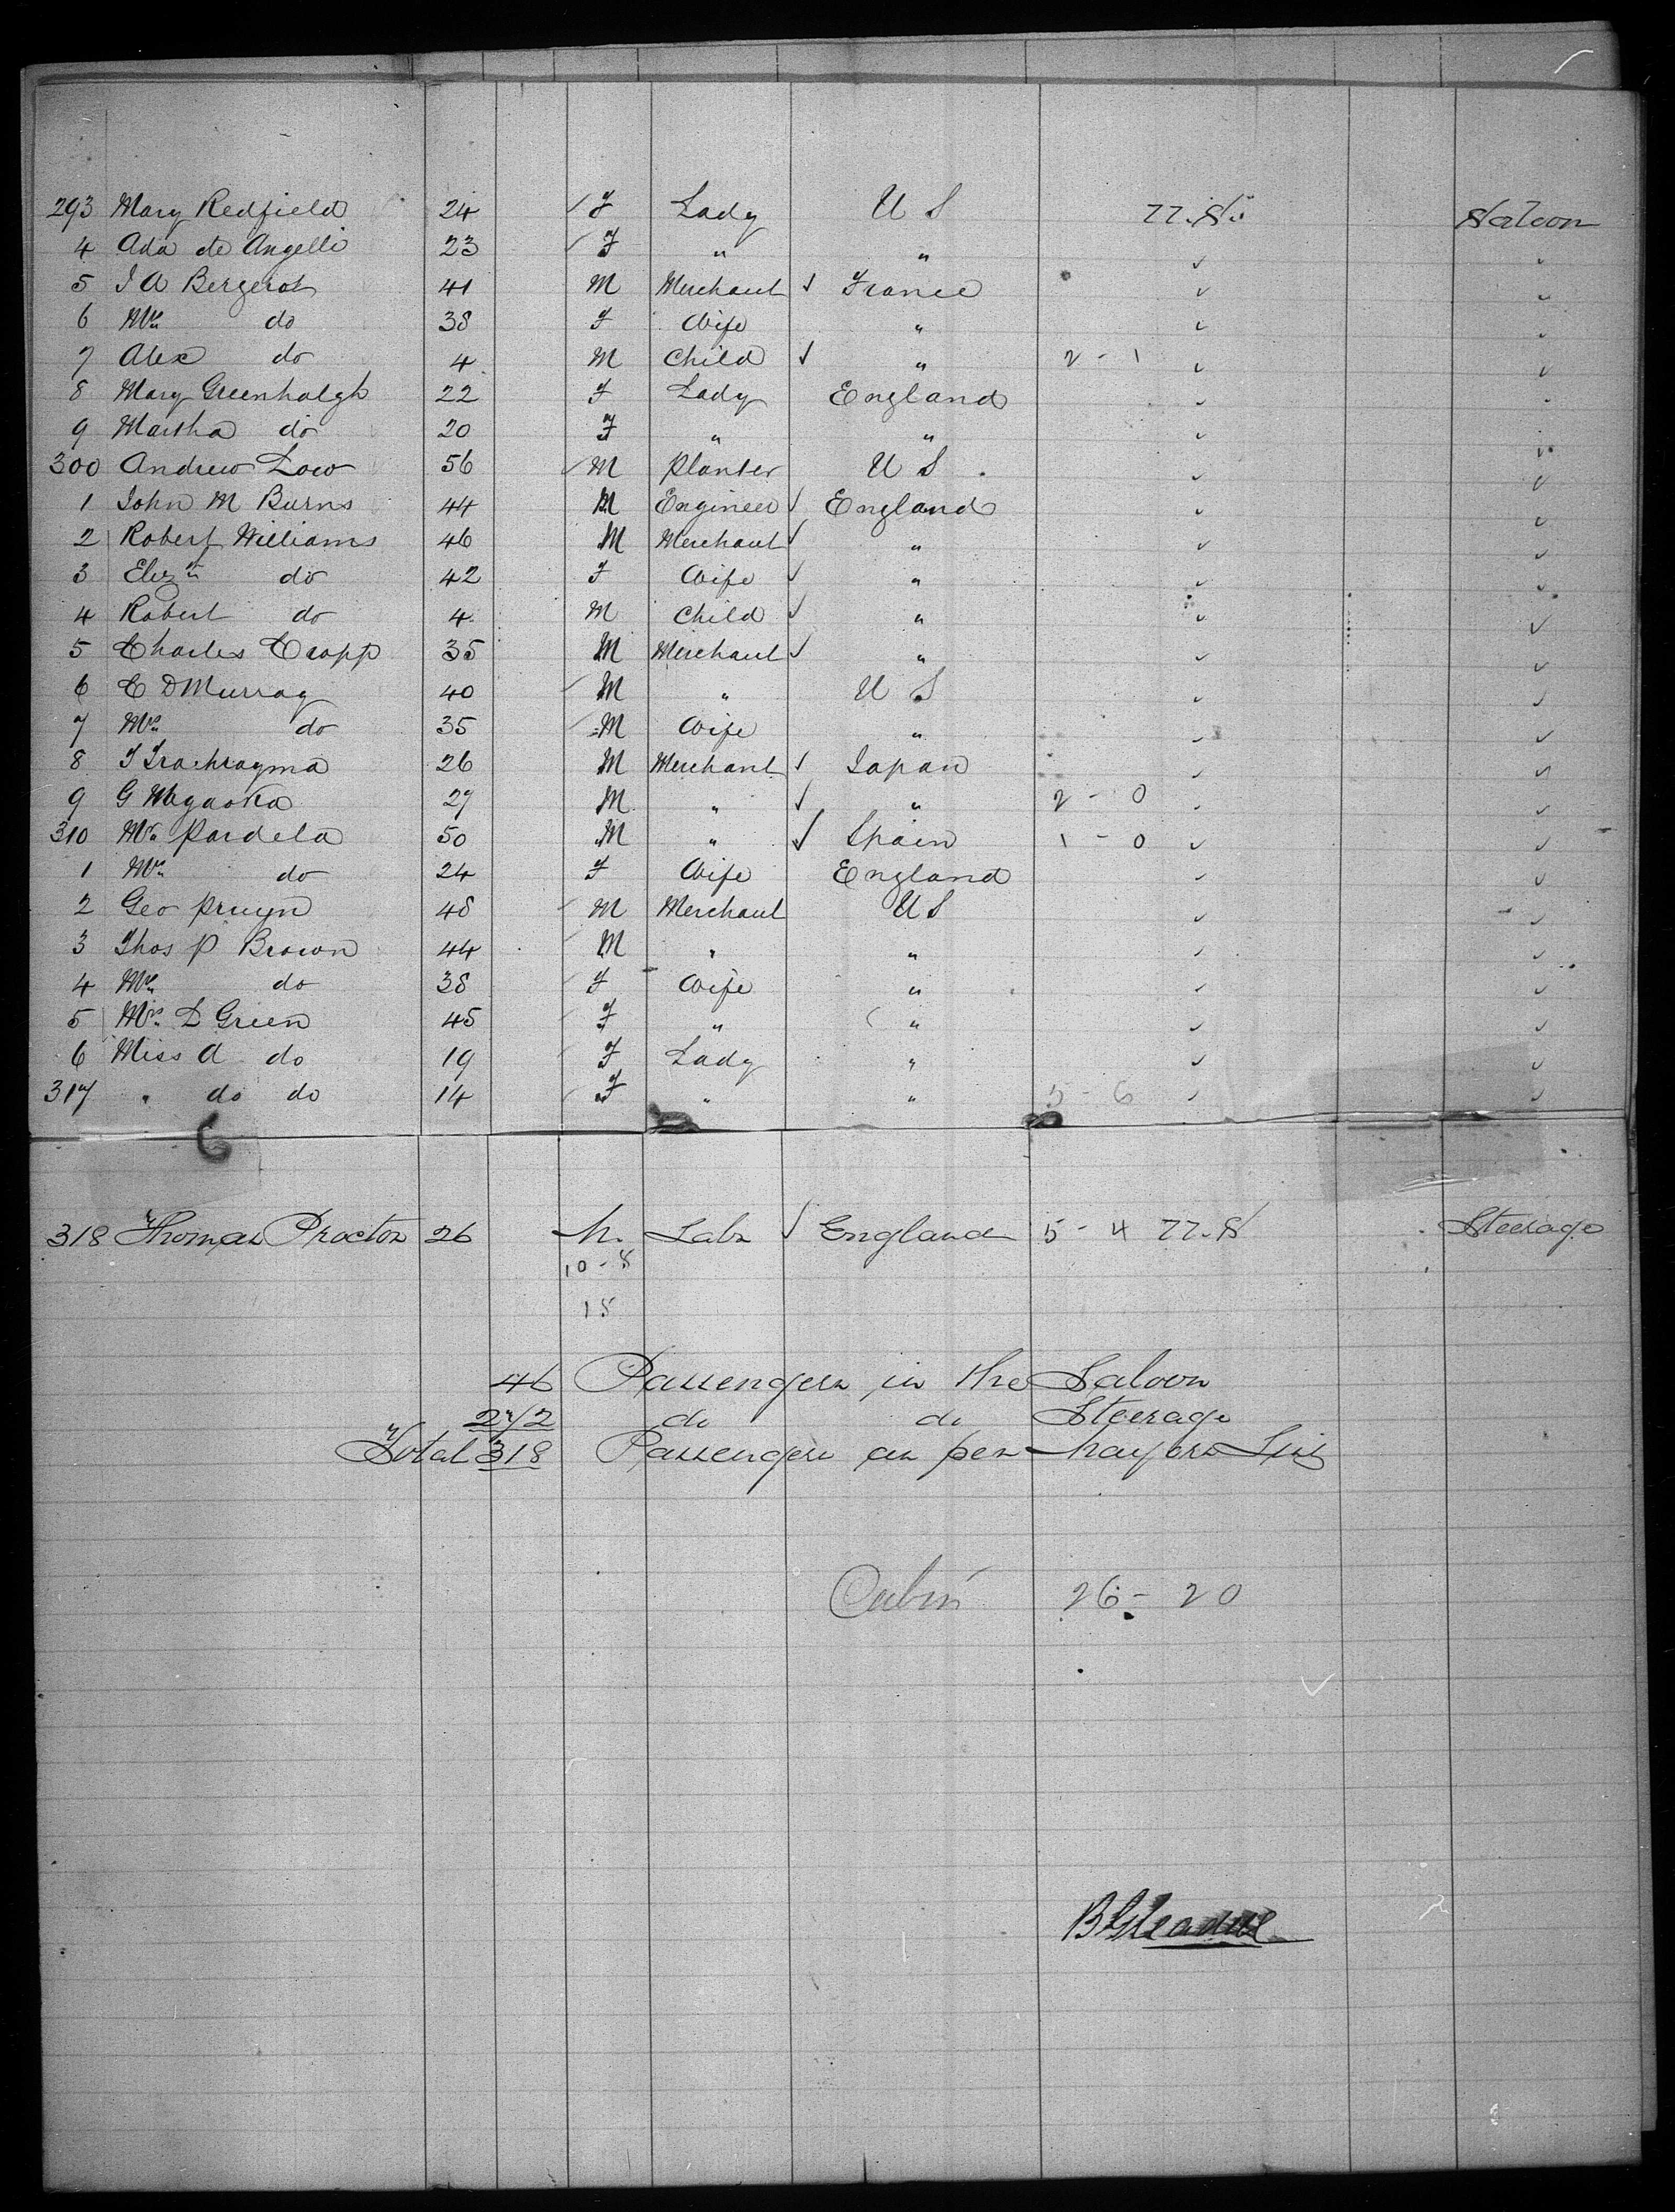 293 Mary Redfield 24 F Lady U S U.S. Saloon
4 Ada de Angelli 23 F " "
5 J A Bergerot 41 M Merchant France
6 Mrs do 38 F Wife "
7 Alex do 4 M Child " 2 - 1
8 Mary Greenhalgh 22 F Lady England
9 Martha do 20 F " "
300 Andrew Low 56 M Planter U S
1 John M Burns 44 M Engineer England
2 Robert Williams 46 M Merchant "
3 Elizth do 42 F Wife "
4 Robert do 4 M Child "
5 Charles Crapp 35 M Merchant "
6 C D Murray 40 M " U S
7 Mrs do 35 M Wife "
8 26 M Merchant Japan
9 G 27 M " " 2 - 0
310 Mr Pardela 50 M " Spain 1 - 0
1 Mrs do 24 F Wife England
2 Geo Pruyn 48 M Merchant U S
3 Thos P Brown 44 M " "
4 Mrs do 38 F Wife "
5 Mrs D Green 45 F " "
6 Miss A do 19 F Lady "
317 " do do 14 F " " 5 - 6
6
318 Thomas Procton 26 M. Labr England 5 - 4 U.S Steerage
10 - 8
18
46 Passengers in the Saloon
272 do do Steerage
Total 318 Passengers as per List
Cabin 26 - 20